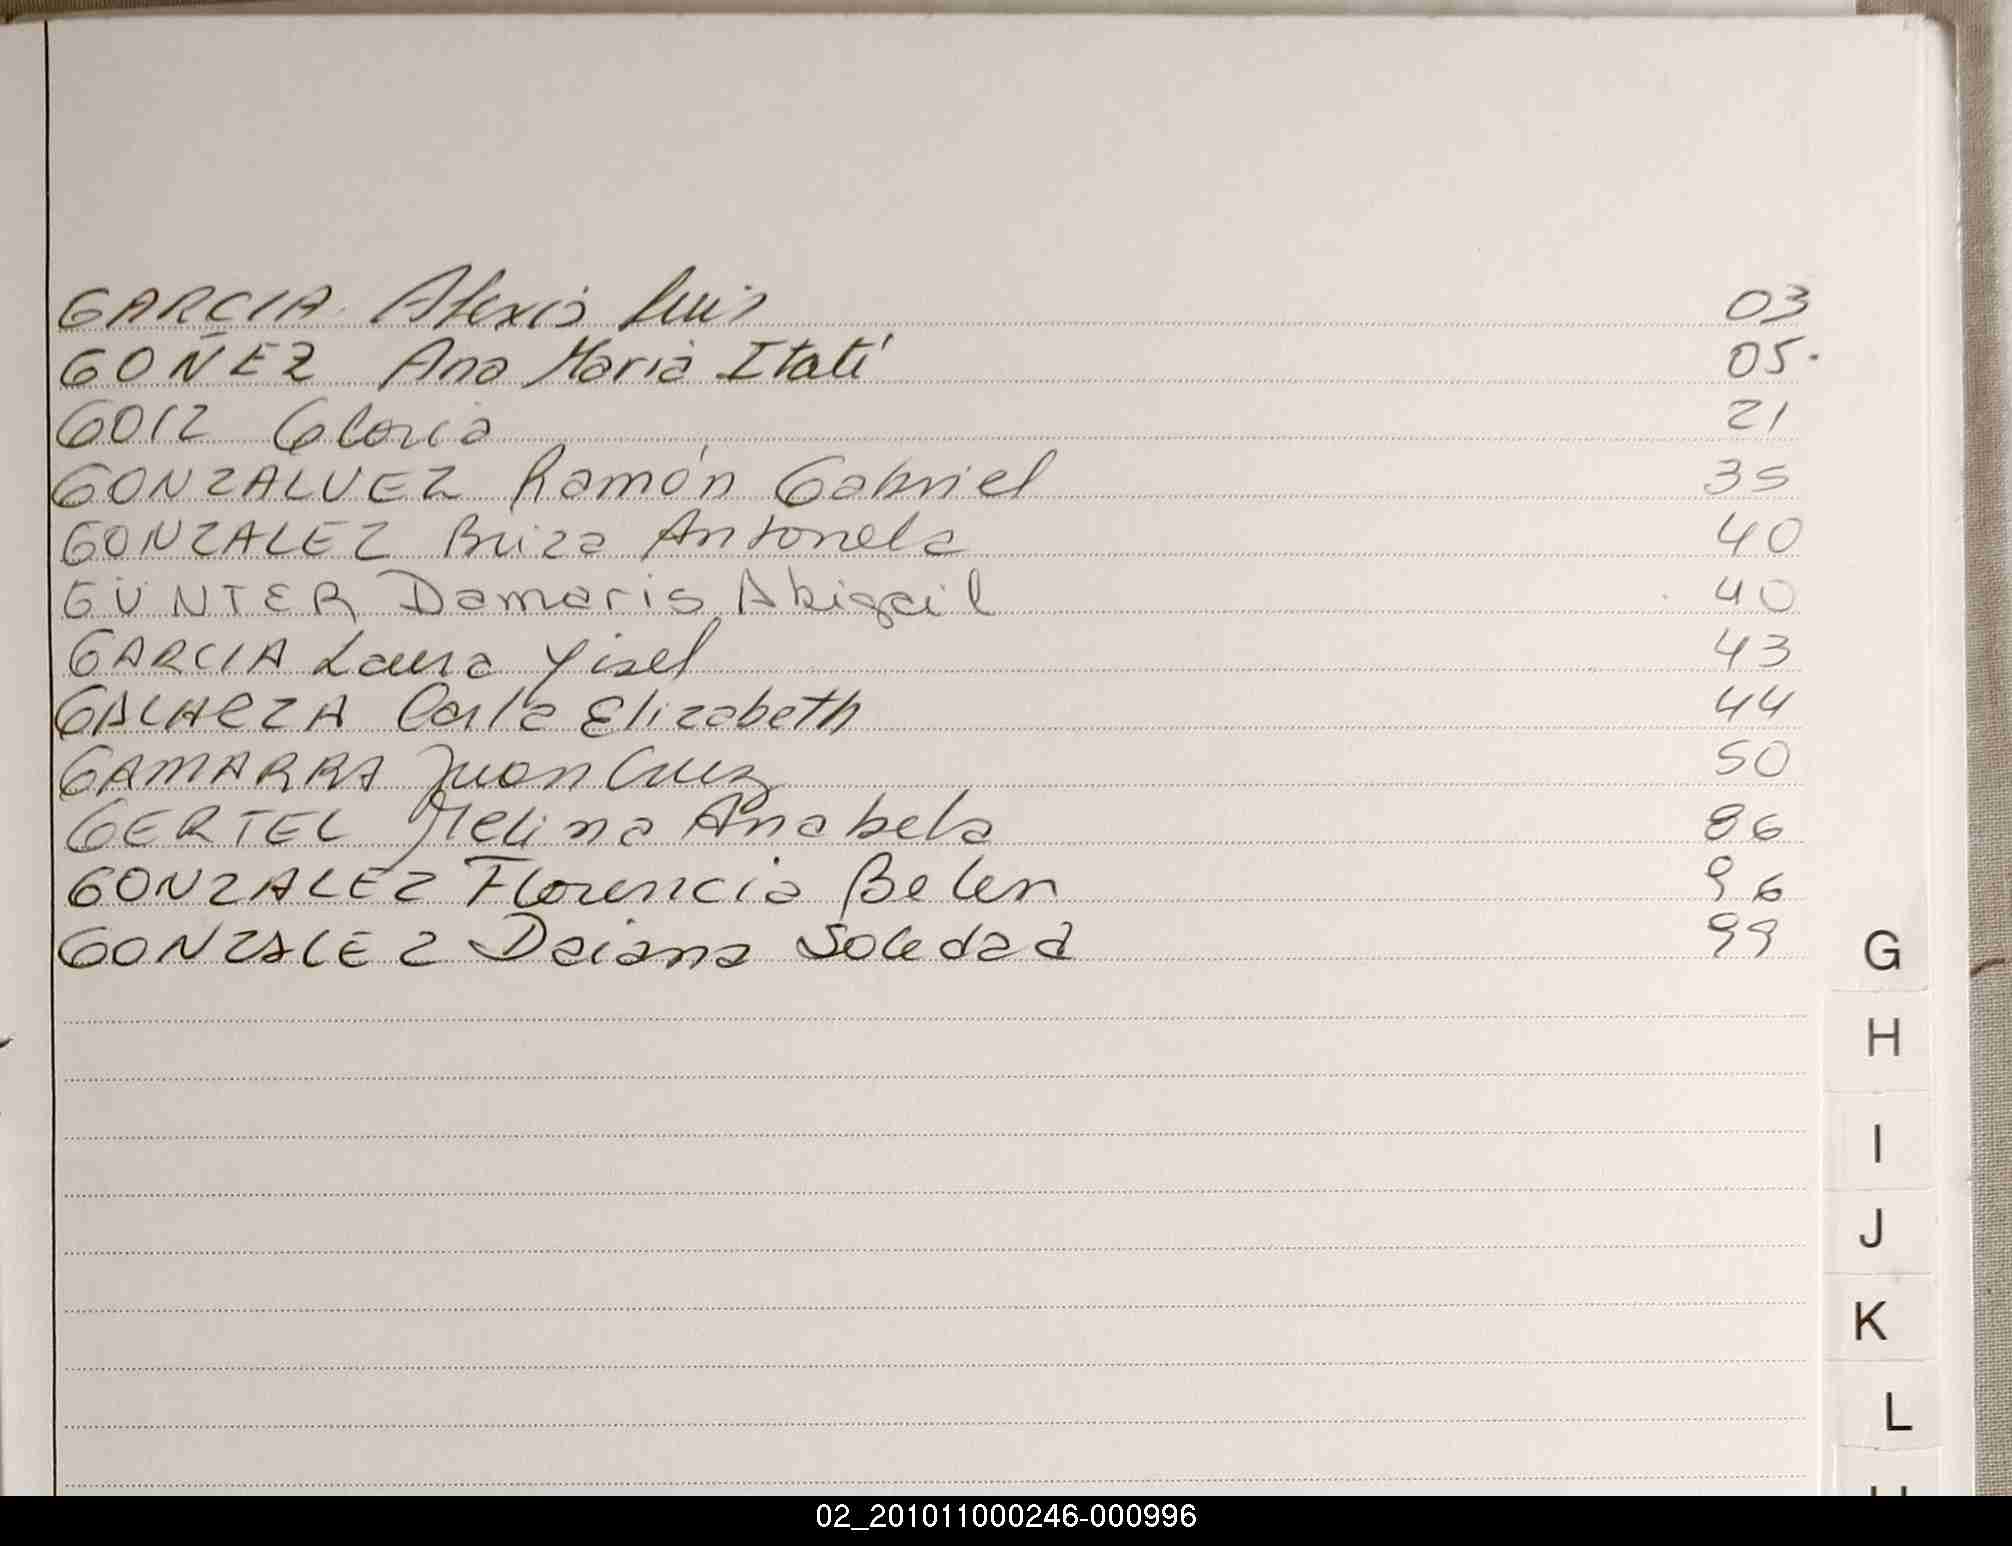 GARCIA Alexis Luis 03
GOÑEZ Ana Maria Itatí 05.
GOIZ Gloria 21
GONZALVEZ Ramón Gabriel 35
GONZALEZ Briza Antonela 40
GÜNTER Damaris Abigail 40
GARCIA Laura Yisel 43
GALARZA Carla Elizabeth 44
GAMARRA Juan Cruz 50
GERTEL Melina Anabela 86
GONZALEZ Florencia Belen 96
GONZALEZ Daiana Soledad 99
G
H
I
J
K
L
02_201011000246-000996